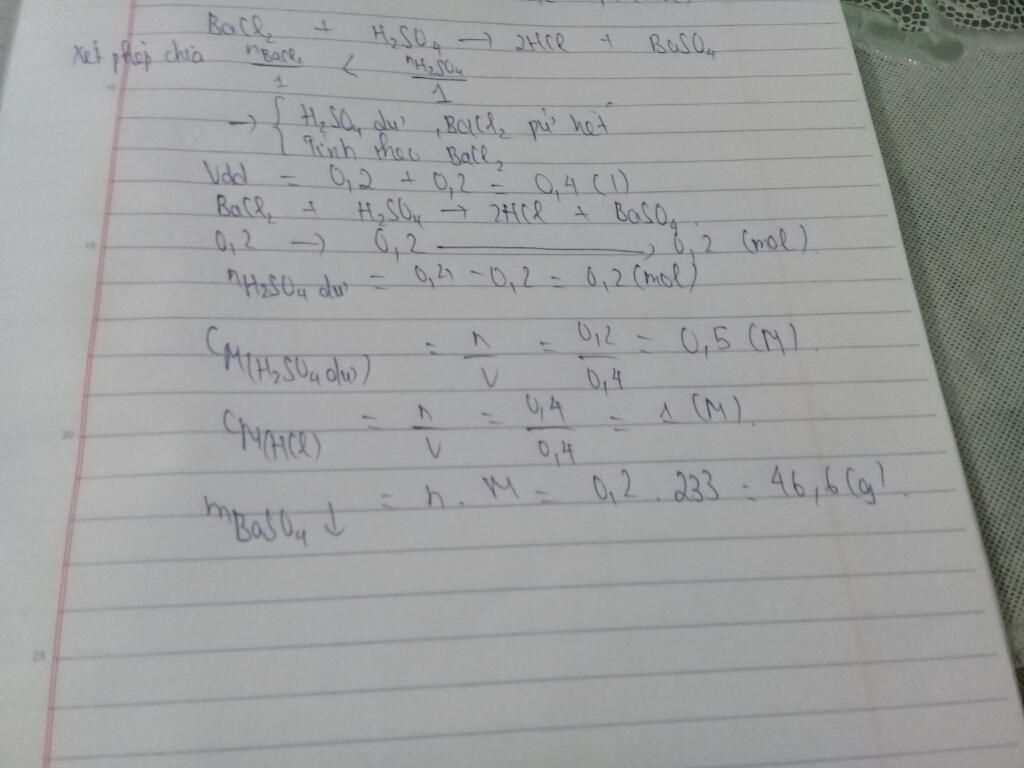 BaCl₂ + H₂SO₄ → 2HCl + BaSO₄
Xét phép chia nBaCl₂/1 < nH₂SO₄/1
→ { H₂SO₄ dư, BaCl₂ pứ hết
Tính theo BaCl₂
Vdd = 0,2 + 0,2 = 0,4 (l)
BaCl₂ + H₂SO₄ → 2HCl + BaSO₄.
0,2 → 0,2 → 0,2 (mol).
nH₂SO₄ dư = 0,4 - 0,2 = 0,2 (mol)
CM(H₂SO₄ dư) = n/V = 0,2/0,4 = 0,5 (M).
CM(HCl) = n/V = 0,4/0,4 = 1 (M).
mBaSO₄↓ = n . M = 0,2 . 233 = 46,6 (g).